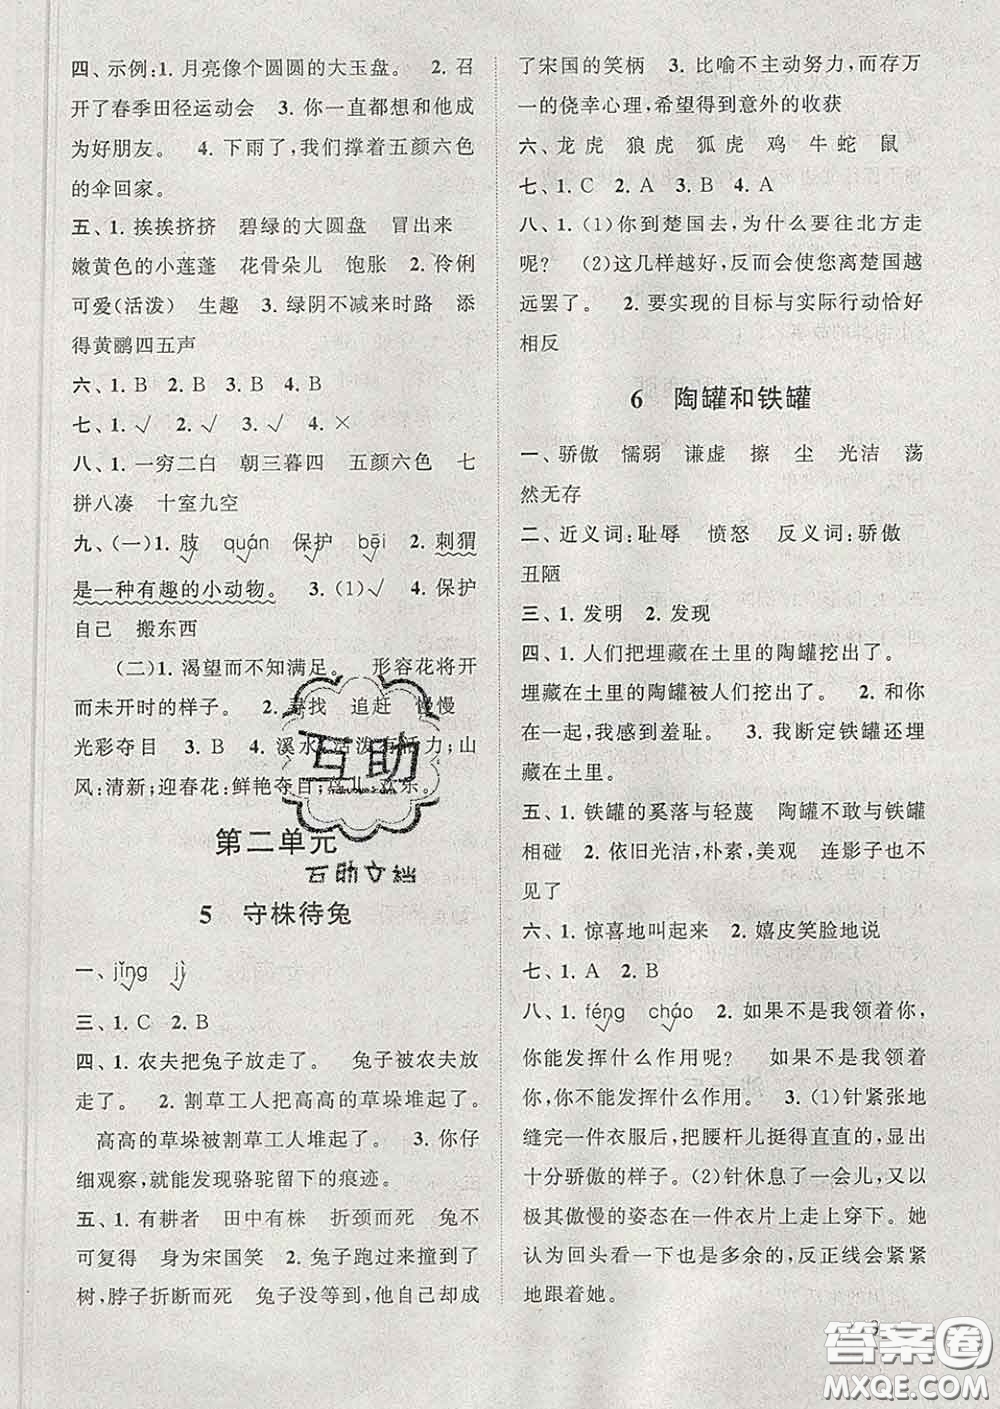 四、示例:1. 月亮像个圆圆的大玉盘。 2. 召
开了春季田径运动会 3. 你一直都想和他成
为好朋友。 4. 下雨了,我们撑着五颜六色
的伞回家。
五、1. 挨挨挤挤 碧绿的大圆盘 冒出来
嫩黄色的小莲蓬 花骨朵儿 饱胀 2. 伶俐
可爱(活泼) 生趣 3. 绿阴不减来时路 添
得黄鹂四五声
六、1. B 2. B 3. B 4. B
七、1. √ 2. √ 3. √ 4. ×
八、1. 一穷二白 朝三暮四 五颜六色 七
拼八凑 十室九空
九、(一)1. 肢 quán 保护 bēi 2. 刺猬
是一种有趣的小动物。 3. (1)√ 4. 保护
自己 搬东西
(二)1. 渴望而不知满足。 形容花将开
而未开时的样子。 2. 寻找 追赶 慢慢
光彩夺目 3. B 4. 溪水:活泼有活力;山
风:清新;迎春花:鲜艳夺目;鸟儿:欢乐。
第二单元
5 守株待兔
一、jǐng jì
三、1. C 2. B
四、1. 农夫把兔子放走了。 兔子被农夫放
走了。 2. 割草工人把高高的草垛堆起了。
高高的草垛被割草工人堆起了。 3. 你仔
细观察,就能发现骆驼留下的痕迹。
五、1. 有耕者 田中有株 折颈而死 兔不
可复得 身为宋国笑 2. 兔子跑过来撞到了
树,脖子折断而死 兔子没等到,他自己却成
了宋国的笑柄 3. 比喻不主动努力,而存万
一的侥幸心理,希望得到意外的收获
六、龙 虎 狼 虎 狐 虎 鸡 牛 蛇 鼠
七、1. C 2. A 3. B 4. A
八、1. (1)你到楚国去,为什么要往北方走
呢? (2)这几样越好,反而会使您离楚国越
远罢了。 2. 要实现的目标与实际行动恰好
相反
6 陶罐和铁罐
一、骄傲 懦弱 谦虚 擦 尘 光洁 荡
然无存
二、近义词:耻辱 愤怒 反义词:骄傲
丑陋
三、1. 发明 2. 发现
四、1. 人们把埋藏在土里的陶罐挖出了。
埋藏在土里的陶罐被人们挖出了。 2. 和你
在一起,我感到羞耻。 3. 我断定铁罐还埋
藏在土里。
五、1. 铁罐的奚落与轻蔑 陶罐不敢与铁罐
相碰 2. 依旧光洁,朴素,美观 连影子也不
见了
六、1. 惊喜地叫起来 2. 嬉皮笑脸地说
七、1. A 2. B
八、1. féng cháo 2. 如果不是我领着你,
你能发挥什么作用呢? 如果不是我领着
你,你能发挥什么作用。 3. (1)针紧张地
缝完一件衣服后,把腰杆儿挺得直直的,显出
十分骄傲的样子。(2)针休息了一会儿,又以
极其傲慢的姿态在一件衣片上走上穿下。她
认为回头看一下也是多余的,反正线会紧紧
地跟着她。
3
互助
互助文档
答案圈
MXQE.COM